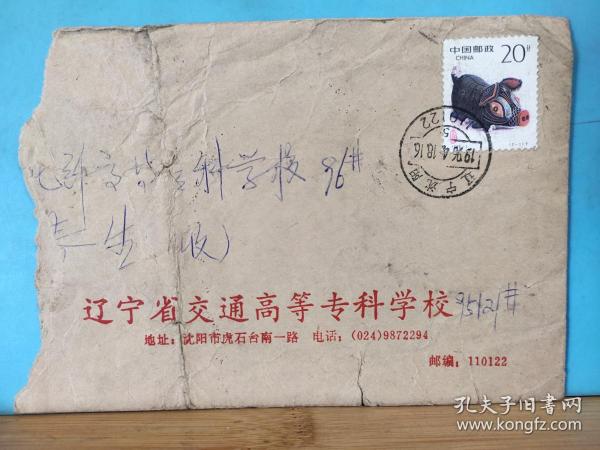 中国邮政
CHINA
20分
110122
辽宁沈阳
科学校 96#
生 收)
辽宁省交通高等专科学校
地址：沈阳市虎石台南一路 电话：(024)9872294
邮编：110122
孔夫子旧书网
www.kongfz.com